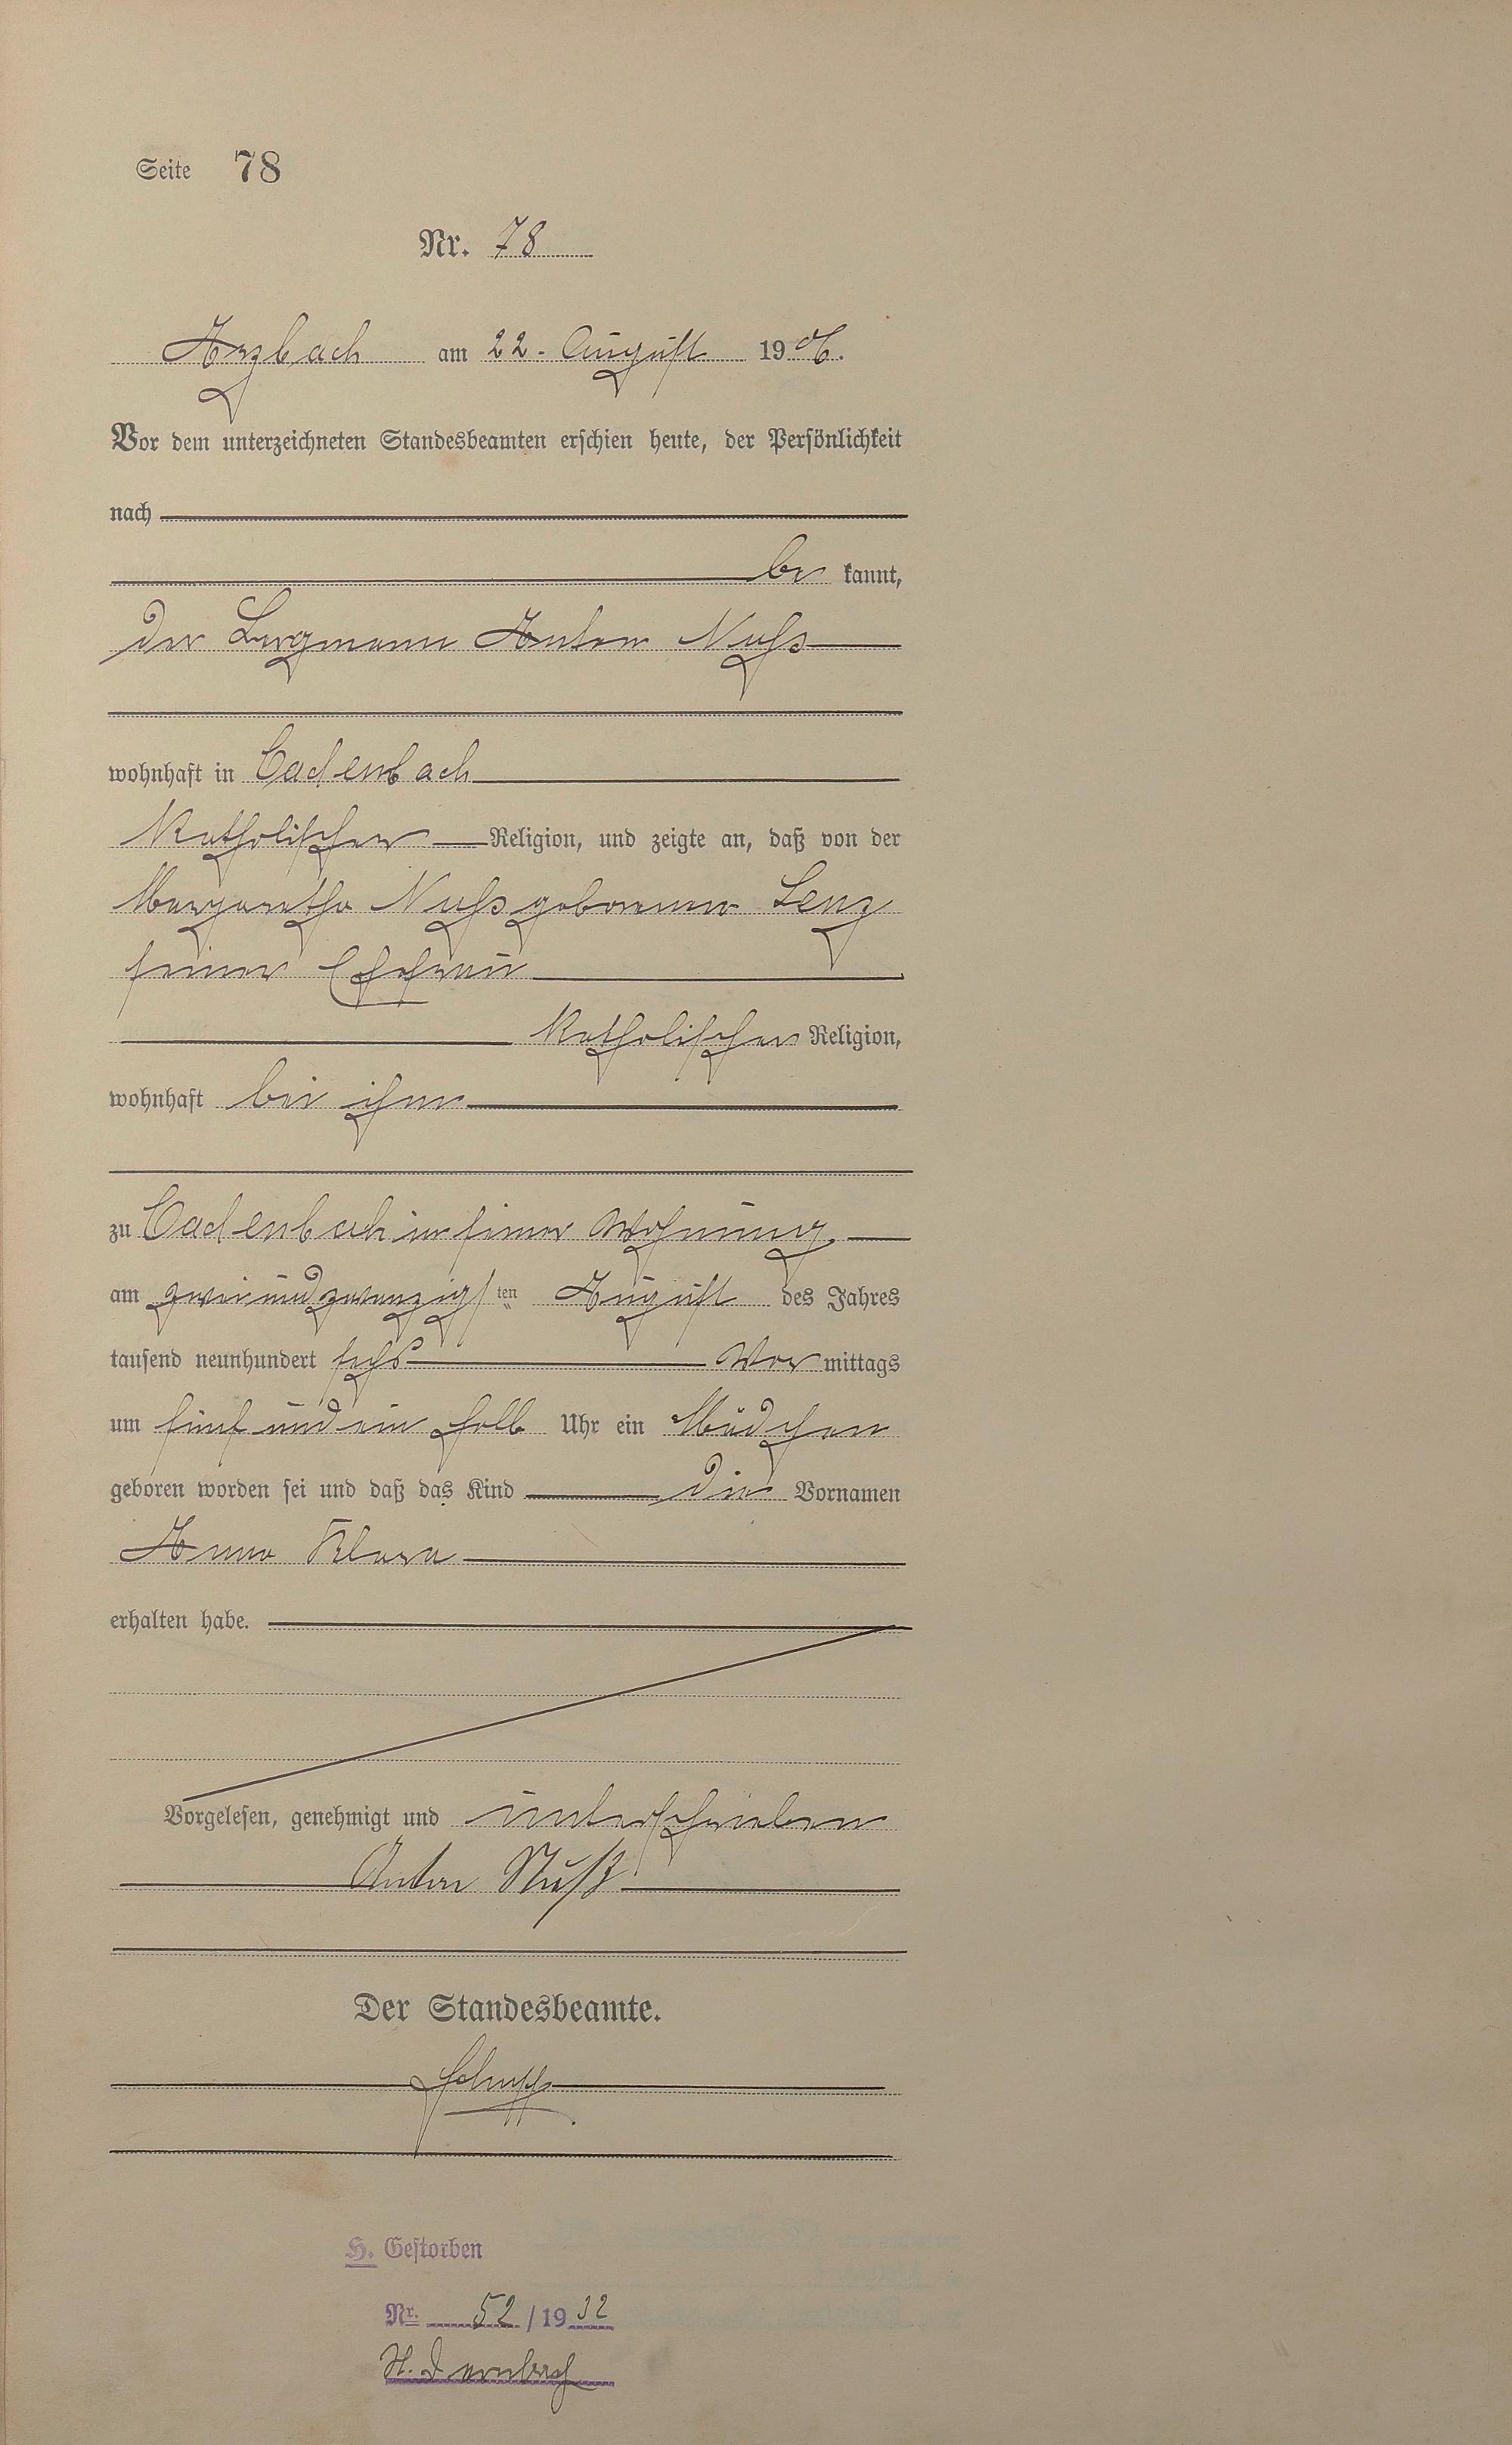 Seite 78
Nr. 78
Arzbach am 22. August 1906.
Vor dem unterzeichneten Standesbeamten erschien heute, der Persönlichkeit
nach
be kannt,
der Bergmann Anton Nuß
wohnhaft in Cadenbach
Katholischer Religion, und zeigte an, daß von der
Margaretha Nuß geborenen Lenz
seiner Ehefrau
Katholischer Religion,
wohnhaft bei ihm
zu Cadenbach in seiner Wohnung
am zweiundzwanzigsten August des Jahres
tausend neunhundert sechs Vor mittags
um fünf und ein halb Uhr ein Mädchen
geboren worden sei und daß das Kind die Vornamen
Anna Klara
erhalten habe.
Vorgelesen, genehmigt und unterschrieben
Anton Nuß
Der Standesbeamte.
Schupp
H. Gestorben
Nr. 52/1932